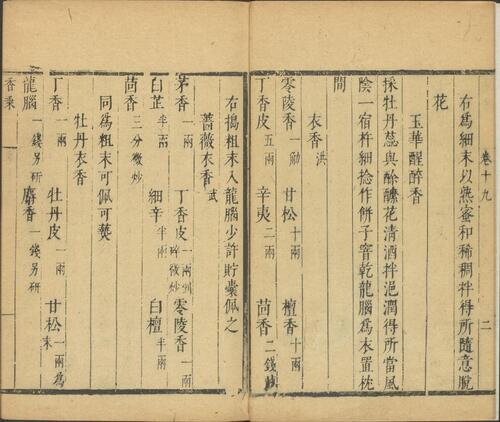 卷十九
二
右為細末以煉蜜和稀稠拌得所隨意脫
花
玉華醒醉香
採牡丹蕊與酴醿花清酒拌浥潤得所當風
陰一宿杵細捻作餅子窨乾龍腦為衣置枕
間
衣香 洪
零陵香 一觔 甘松 十兩 檀香 十兩
丁香皮 五兩 辛夷 二兩 茴香 二錢
右搗粗末入龍腦少許貯囊佩之
薔薇衣香 武
茅香 一兩 丁香皮 一兩剉碎微炒 零陵香 一兩
白芷 半兩 細辛 半兩 白檀 半兩
茴香 三分微炒
同為粗末可佩可爇
牡丹衣香
丁香 一兩 牡丹皮 一兩 甘松 一兩為末
龍腦 一錢另研 麝香 一錢另研
香乘